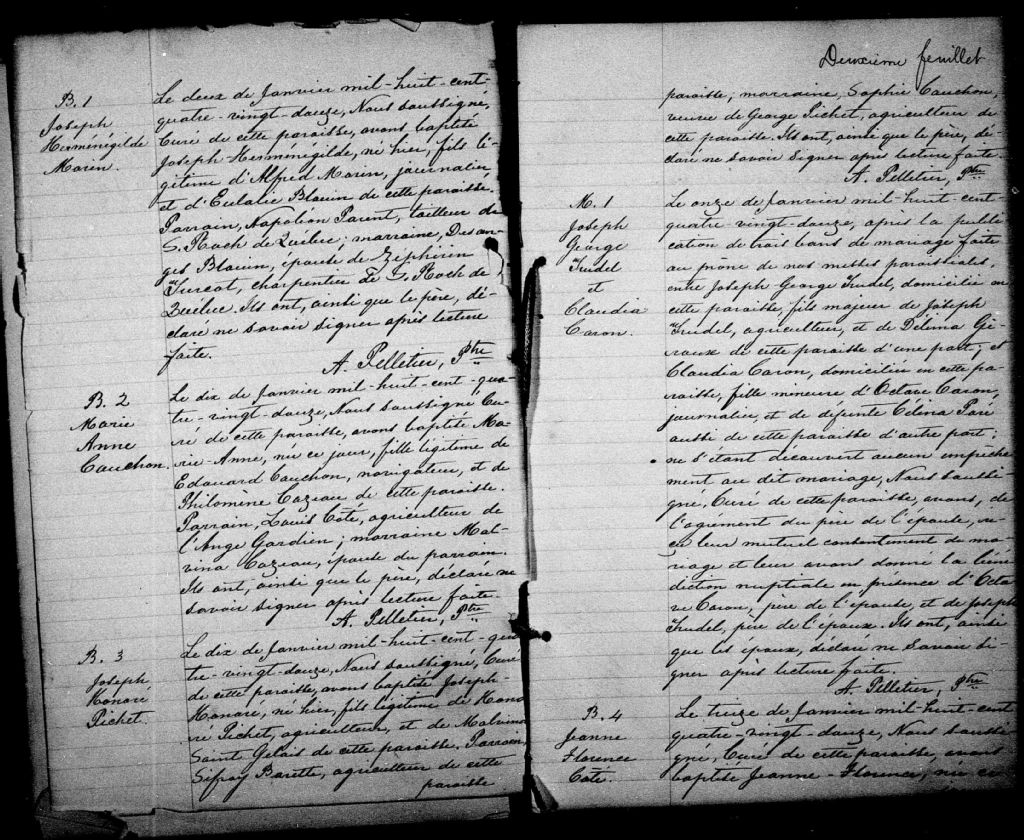 B. 1
Joseph
Herménégilde
Morin.
Le deux de Janvier mil-huit-cent-
quatre-vingt-douze, Nous soussigné,
Curé de cette paroisse, avons baptisé
Joseph Herménégilde, né hier, fils lé-
gitime d'Alfred Morin, journalier
et d'Eulalie Blouin de cette paroisse.
Parrain, Napoléon Parent, tailleur de
S. Roch de Québec; marraine, Desan-
ges Blouin, épouse de Zéphirin
Turcot, charpentier de S. Roch de
Québec. Ils ont, ainsi que le père, dé-
claré ne savoir signer après lecture
faite.
A. Pelletier, Ptre
B. 2
Marie
Anne
Cauchon.
Le dix de Janvier mil-huit-cent-qua-
tre-vingt-douze, Nous soussigné Cu-
ré de cette paroisse, avons baptisé Ma-
rie-Anne, née ce jour, fille légitime de
Edouard Cauchon, navigateur, et de
Philomène Cazeau de cette paroisse.
Parrain, Louis Côté, agriculteur de
l'Ange Gardien; marraine Mal-
vina Cazeau, épouse du parrain.
Ils ont, ainsi que le père, déclaré ne
savoir signer après lecture faite.
A. Pelletier, Ptre
B. 3
Joseph
Honoré
Pichet.
Le dix de Janvier mil-huit-cent-qua
tre-vingt-douze, Nous soussigné, Curé
de cette paroisse, avons baptisé Joseph-
Honoré, né hier, fils légitime de Hono
ré Pichet, agriculteur, et de Malvina
Saint Gelais de cette paroisse. Parrain,
Sifroy Barette, agriculteur de cette
paroisse
Deuxième feuillet
paroisse; marraine, Sophie Cauchon,
veuve de George Pichet, agriculteur de
cette paroisse. Ils ont, ainsi que le père, dé-
claré ne savoir signer après lecture faite.
A. Pelletier, Ptre
M. 1
Joseph
George
Trudel
et
Claudia
Caron.
Le onze de Janvier mil-huit-cent-
quatre-vingt-douze, après la publi
cation de trois bans de mariage faite
au prône de nos messes paroissiales,
entre Joseph George Trudel, domicilié en
cette paroisse, fils majeur de Joseph
Trudel, agriculteur, et de Délima Gi-
roux de cette paroisse d'une part; et
Claudia Caron, domiciliée en cette pa-
roisse, fille mineure d'Octave Caron,
journalier, et de défunte Célina Paré
aussi de cette paroisse d'autre part;
ne s'étant découvert aucun empêche
ment au dit mariage, Nous soussi-
gné, Curé de cette paroisse, avons, de
l'agrément du père de l'épouse, re-
çu leur mutuel consentement de ma-
riage et leur avons donné la béné
diction nuptiale en présence d'Octa
ve Caron, père de l'épouse, et de Joseph
Trudel, père de l'époux. Ils ont, ainsi
que les époux, déclaré ne savoir si-
gner après lecture faite.
A. Pelletier, Ptre
B. 4
Jeanne
Florence
Côté.
Le treize de Janvier mil-huit-cent
quatre-vingt-douze, Nous soussi
gné, Curé de cette paroisse, avons
baptisé Jeanne-Florence, née ce